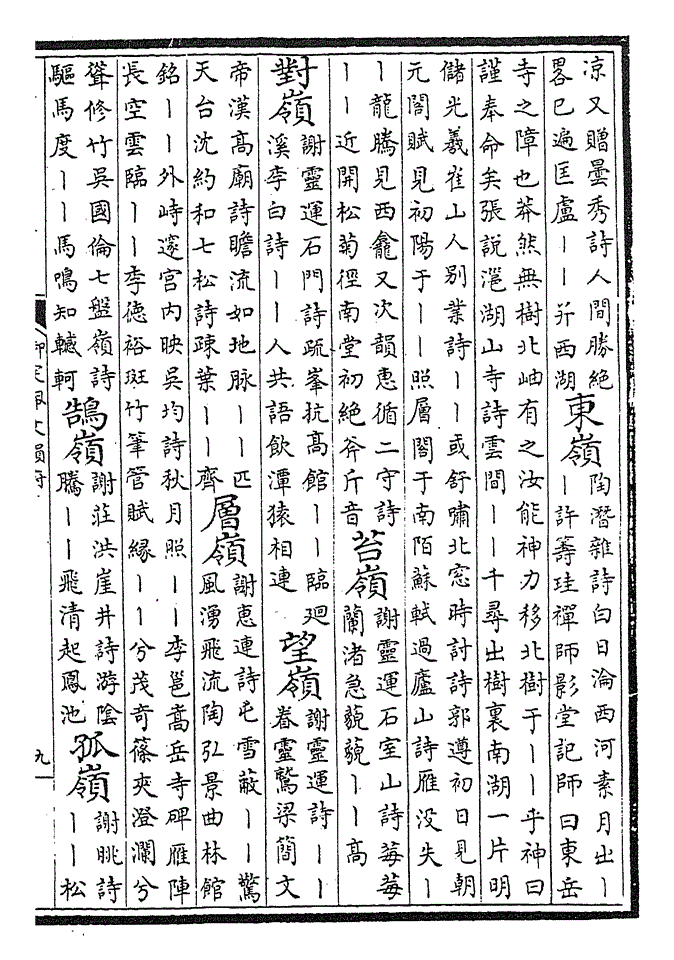 涼又贈曇秀詩人間勝絶
畧已遍匡廬丨丨并西湖
東嶺
陶潛雜詩白日淪西河素月出丨
丨許籌珪禪師影堂記師曰東岳
寺之障也莽然無樹北岫有之汝能神力移北樹于丨丨乎神曰
謹奉命矣張說㴩湖山寺詩雲間丨丨千尋出樹裏南湖一片明
儲光羲崔山人別業詩丨丨或舒嘯北窓時討詩郭遵初日見朝
元閣賦見初陽于丨丨照層閣于南陌蘇軾過廬山詩雁没失丨
丨龍騰見西龕又次韻惠循二守詩
丨丨近開松菊徑南堂初絶斧斤音
苔嶺
謝靈運石室山詩莓莓
蘭渚急藐藐丨丨高
對嶺
謝靈運石門詩疏峯抗高館丨丨臨廻
溪李白詩丨丨人共語飲潭猿相連
望嶺
謝靈運詩丨丨
眷靈鷲梁簡文
帝漢高廟詩瞻流如地脉丨丨匹
天台沈約和七松詩疎葉丨丨齊
層嶺
謝惠連詩屯雪蔽丨丨驚
風湧飛流陶弘景曲林館
銘丨丨外峙邃宫内映吳均詩秋月照丨丨李邕嵩岳寺碑雁陣
長空雲臨丨丨李德裕斑竹筆管賦緣丨丨兮茂竒篠夾澄瀾兮
聳修竹吳國倫七盤嶺詩
驅馬度丨丨馬鳴知轗軻
鵠嶺
謝莊洪崖井詩游陰
騰丨丨飛清起鳳池
孤嶺
謝眺詩
丨丨松
御定佩文韻府
九